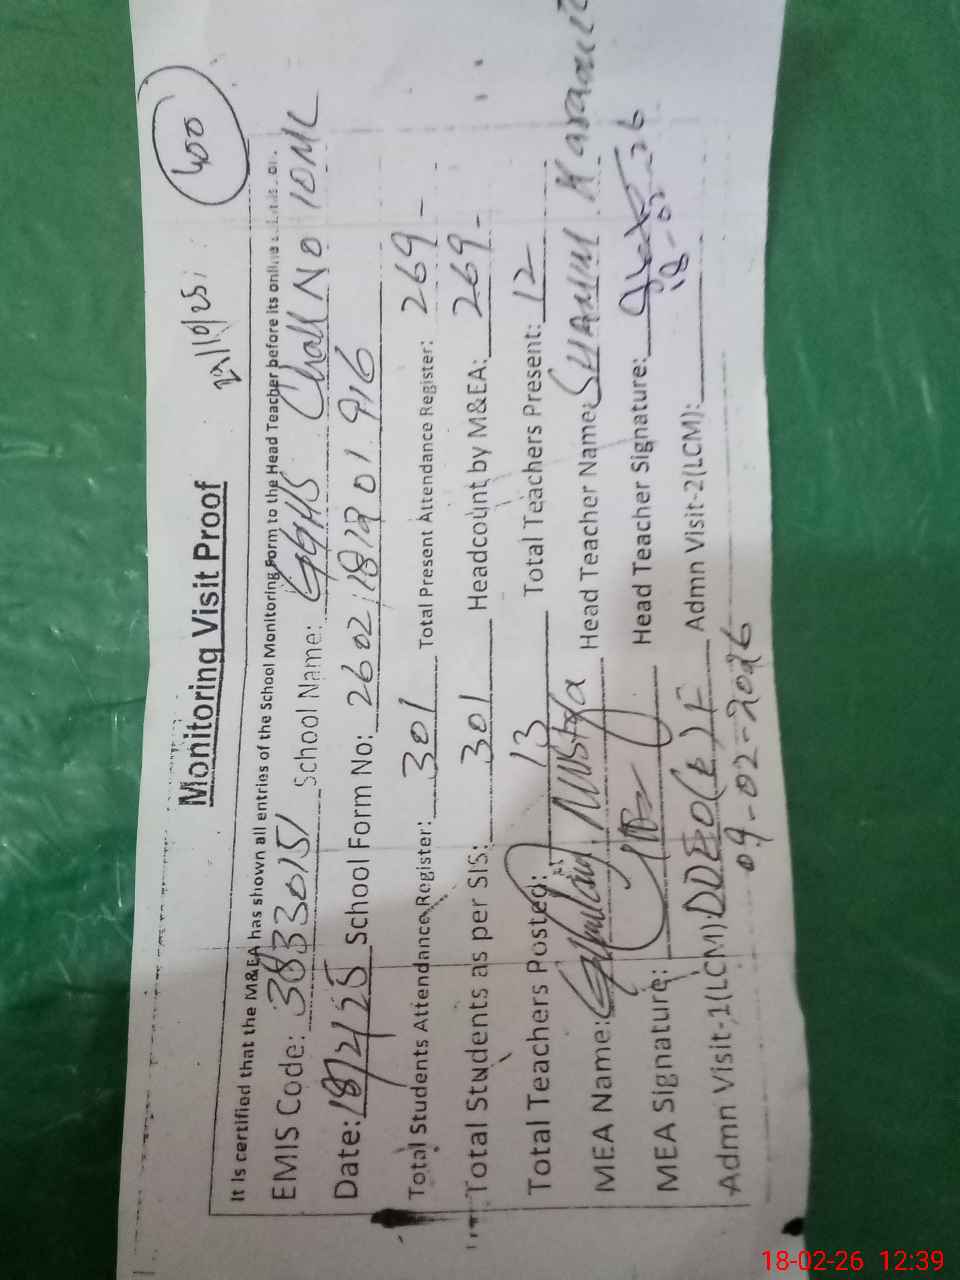 400
Monitoring Visit Proof
It is certified that the M&EA has shown all entries of the School Monitoring Form to the Head Teacher before its online
EMIS Code: 38330151 School Name: GGHS Chak No 10ML
Date: 18/2/25 School Form No: 2602 18 01 916
Total Students Attendance Register: 301 Total Present Attendance Register: 269
Total Students as per SIS: 301 Headcount by M&EA: 269
Total Teachers Posted: 13 Total Teachers Present: 12
MEA Name: Ghulam Mustafa Head Teacher Name: SHAMIM
MEA Signature: Head Teacher Signature: 18-02-26
Admn Visit-1(LCM): DDEO(E)F Admn Visit-2(LCM):
09-02-2026
18-02-26 12:39